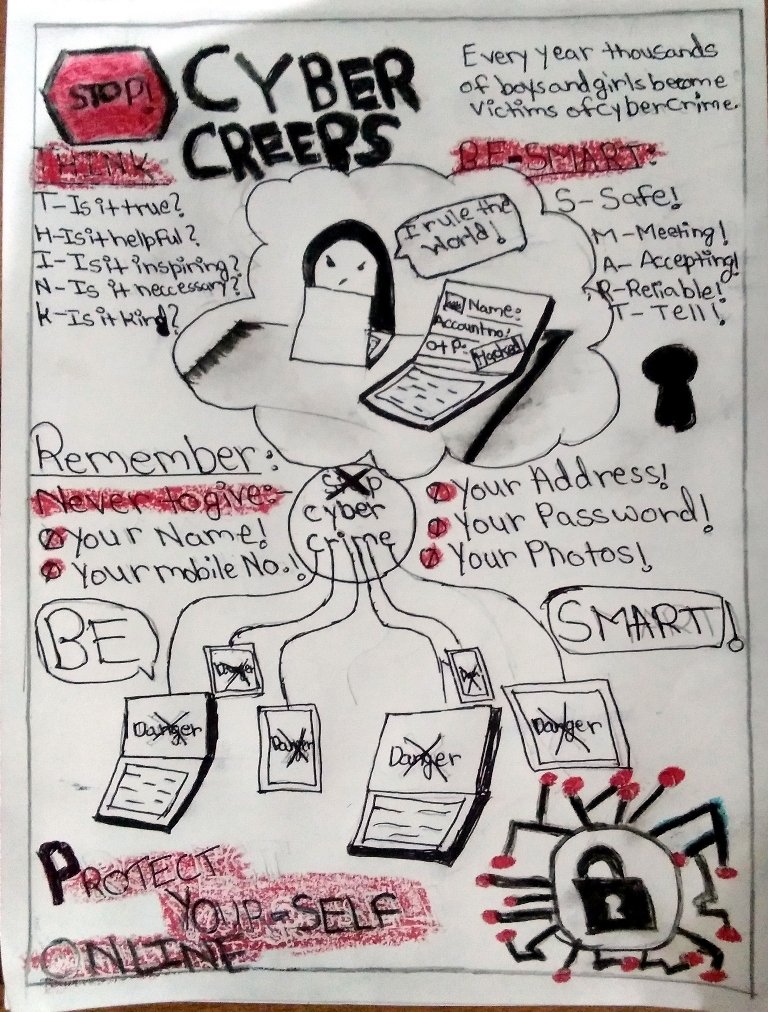 STOP!
CYBER
CREEPS
Every year thousands
of boys and girls become
victims of cyber crime.
THINK
T-Is it true?
H-Is it helpful?
I-Is it inspiring?
N-Is it neccessary?
K-Is it kind?
BE-SMART:
S-Safe!
M-Meeting!
A-Accepting!
R-Reliable!
T-Tell!
I rule the
World!
Name:
Account no:
OTP:
Hacked
Remember:
Never to give:-
Your Name!
Your mobile No.!
Your Address!
Your Password!
Your Photos!
cyber
crime
BE
SMART!
Danger
Danger
Danger
Danger
Danger
PROTECT
YOUR-SELF
ONLINE